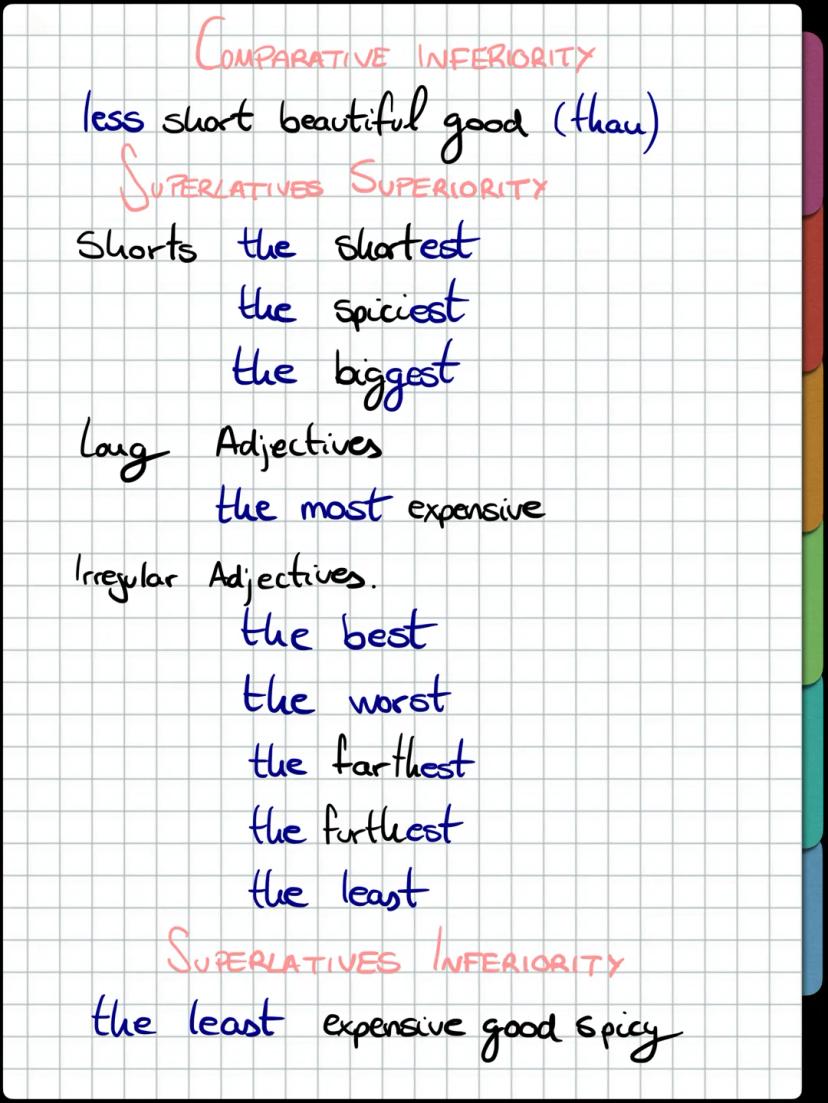 COMPARATIVE INFERIORITY
less short beautiful good (than)
SUPERLATIVES SUPERIORITY
Shorts the shortest
the spiciest
the biggest
Long Adjectives
the most expensive
Irregular Adjectives.
the best
the worst
the farthest
the furthest
the least
SUPERLATIVES INFERIORITY
the least expensive good spicy